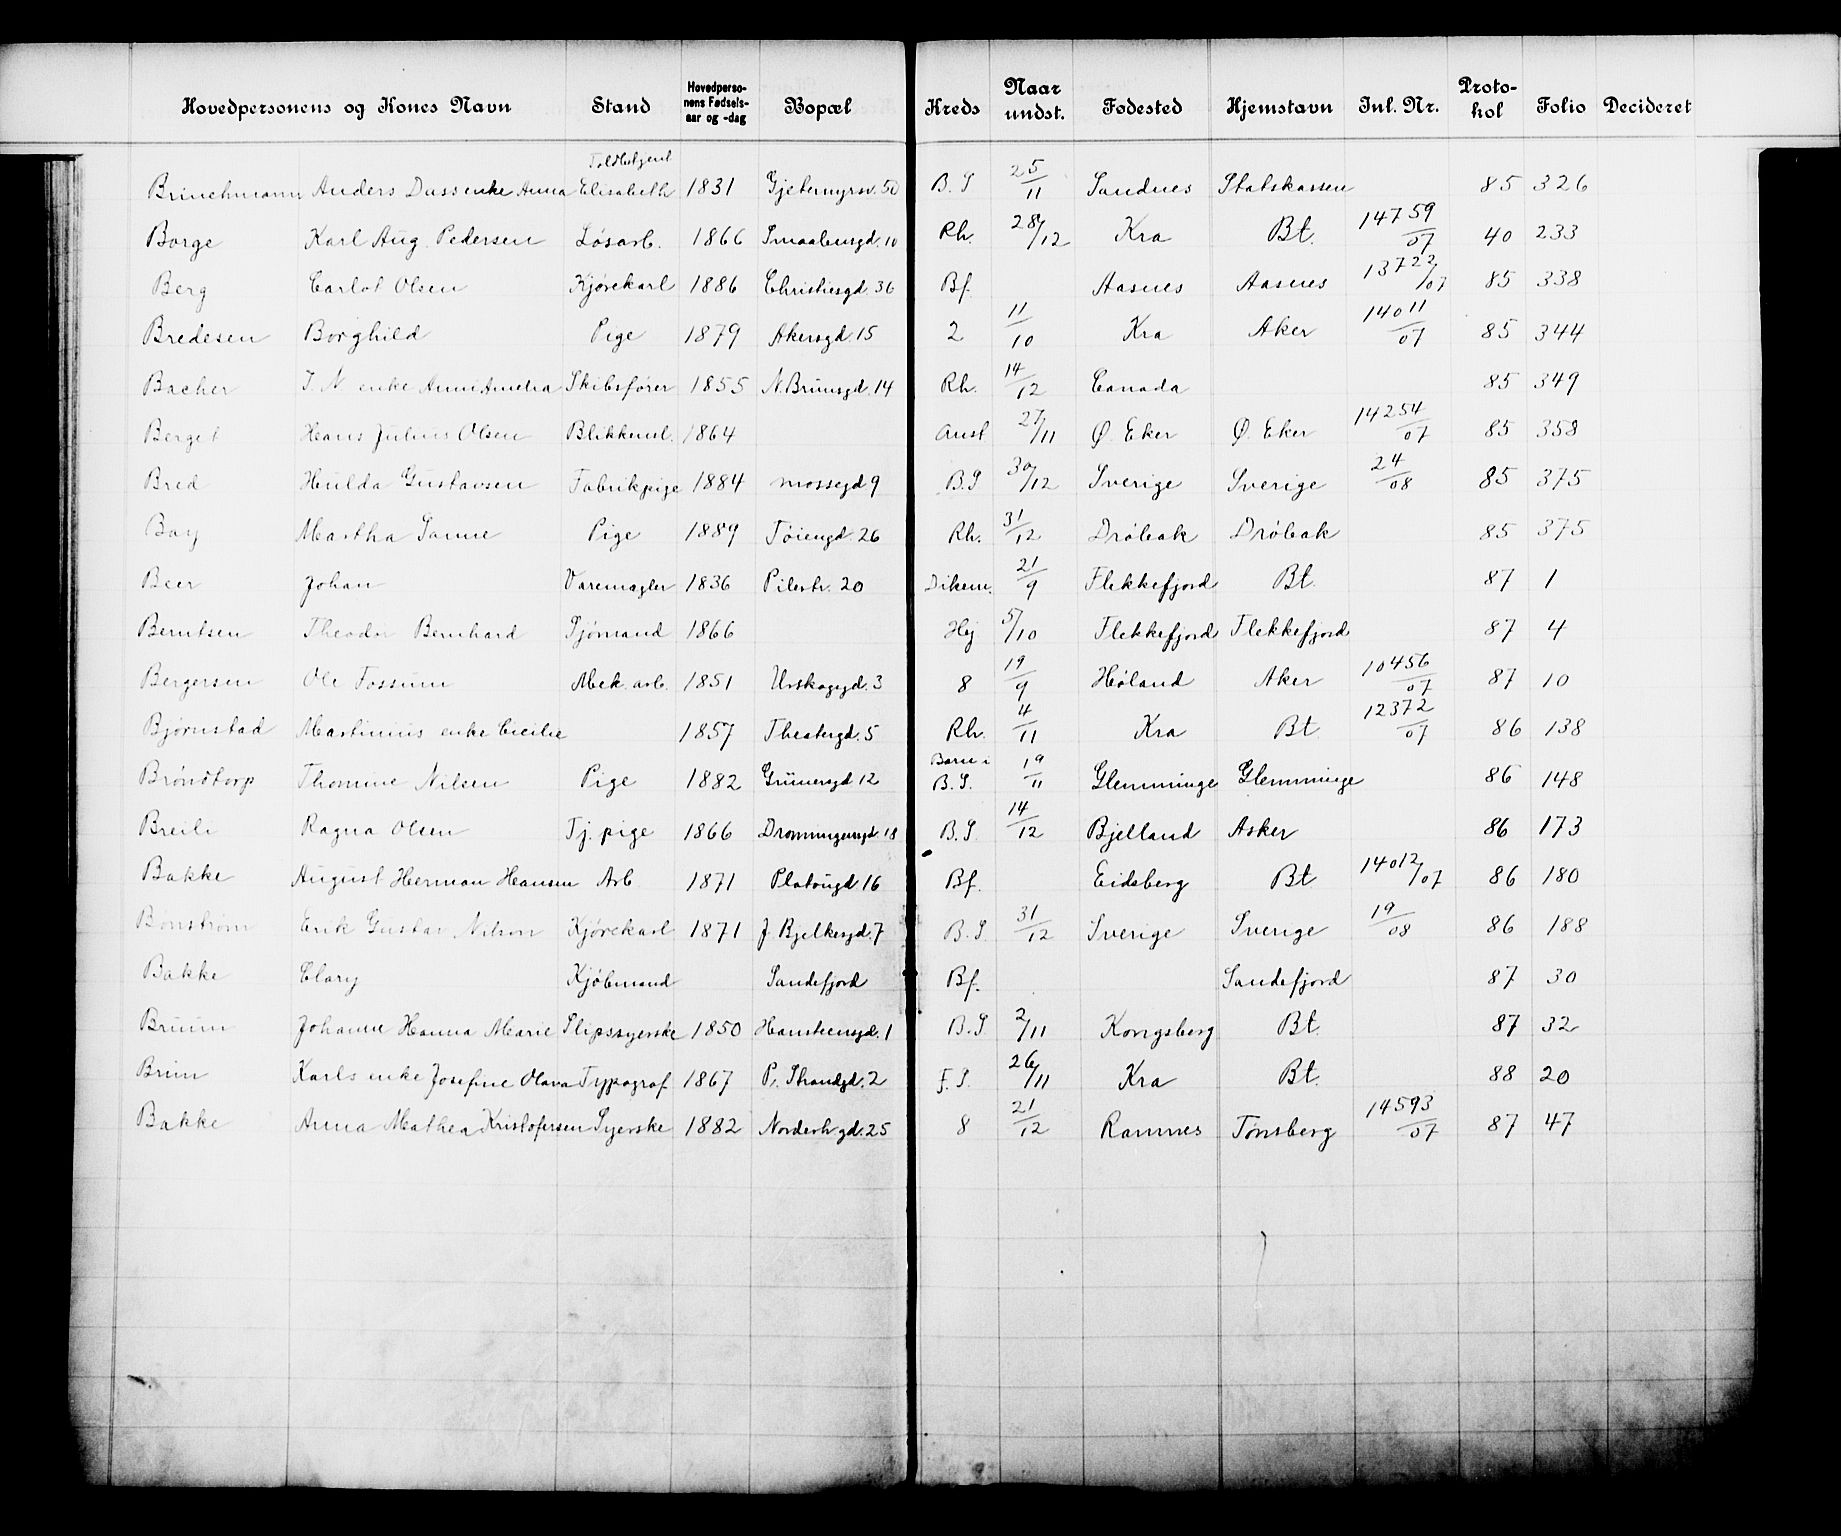 Hovedpersonens og Kones Navn Stand Hovedperso-nens Fødsels-aar og -dag Bopæl Kreds Naar undst. Fødested Hjemstavn Jnl. Nr. Proto-kol Folio Decideret
Toldbetjent
Brinchmann Anders Duss enke Anna Elisabeth 1831 Gjetemyrsv. 50 B. S 25/11 Sandnes Statskassen 85 326
Borge Karl Aug. Pedersen Løsarb. 1866 Smaalensgd. 10 Rh. 28/12 Kra Bt. 14759/07 40 233
Berg Carlot Olsen Kjørekarl 1886 Christiesgd. 36 Bf. Aasnes Aasnes 13722/07 85 338
Bredesen Borghild Pige 1879 Akersgd. 15 2 11/10 Kra Aker 14011/07 85 344
Bacher J. N enke Anni Amelia Skibsfører 1855 N. Brunsgd. 14 Rh. 14/12 Canada 85 349
Berget Hans Julius Olsen Blikkensl. 1864 Anst 27/11 Ø. Eker Ø. Eker 14254/07 85 358
Bred Hulda Gustavsen Fabrikpige 1884 mossegd 9 B.S 30/12 Sverige Sverige 24/08 85 375
Bay Martha Sanne Pige 1889 Tøiengd. 26 Rh. 31/12 Drøbak Drøbak 85 375
Beer Johan Varemægler 1836 Pilestr. 20 Dikem. 21/9 Flekkefjord Bt. 87 1
Berntsen Theodor Bernhard Sjømand 1866 Hej 5/10 Flekkefjord Flekkefjord 87 4
Bergersen Ole Fossum Mek. arb. 1851 Urskoggd. 3 8 19/9 Høland Aker 10456/07 87 10
Bjørnstad Martinius enke Cicilie 1857 Theatergd. 5 Rh. 4/11 Kra Bt. 12372/07 86 138
Brøndtorp Thomine Nilsen Pige 1882 Grünersgd 12 Barn i B. S. 19/11 Glemminge Glemminge 86 148
Breili Ragna Olsen Tj. pige 1866 Dronningensgd. 18 B. S. 14/12 Bjelland Asker 86 173
Bakke August Herman Hansen Arb 1871 Platougd 16 Bf. Eidsberg Bt 14012/07 86 180
Bonstrøm Erik Gustav Nilson Kjørekarl 1871 J. Bjelkesgd. 7 B. S. 31/12 Sverige Sverige 19/08 86 188
Bakke Clary Kjøbmand Sandefjord Bf. Sandefjord 87 30
Bruun Johanne Hanna Marie Slipssyerske 1850 Hansteensgd. 1 B. S 2/11 Kongsberg Bt. 87 32
Brun Karls enke Josefine Olava Typograf 1867 P. Strandgd. 2 F. S. 26/11 Kra Bt. 88 20
Bakke Anna Mathea Kristofersen Syerske 1882 Norderh gd. 25 8 21/12 Ramnes Tønsberg 14593/07 87 47